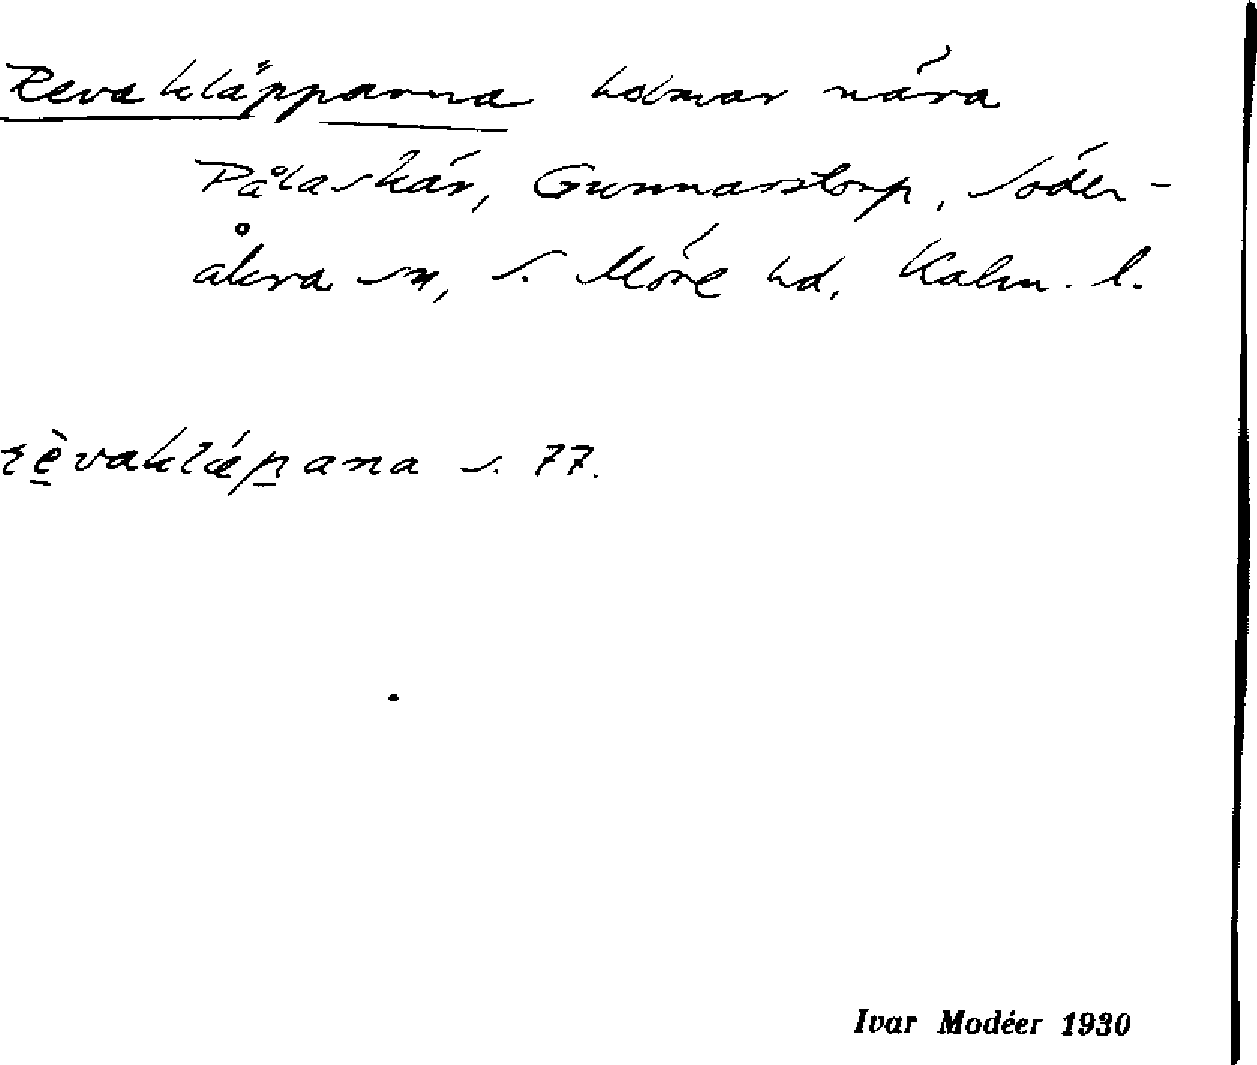 Revakläpparna holmar nära
Pålaskär, Gunnarstorp, Söder-
åkra sn, S. Möre hd, Kalm. l.
rèvaklǽpana s. 77.
Ivar Modéer 1930